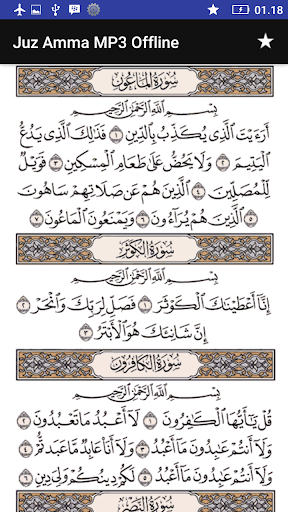 01.18
Juz Amma MP3 Offline
سُورَةُ المَاعُونِ
بِسْمِ ٱللَّهِ ٱلرَّحْمَٰنِ ٱلرَّحِيمِ
أَرَءَيْتَ ٱلَّذِى يُكَذِّبُ بِٱلدِّينِ ١ فَذَٰلِكَ ٱلَّذِى يَدُعُّ
ٱلْيَتِيمَ ٢ وَلَا يَحُضُّ عَلَىٰ طَعَامِ ٱلْمِسْكِينِ ٣ فَوَيْلٌ
لِّلْمُصَلِّينَ ٤ ٱلَّذِينَ هُمْ عَن صَلَاتِهِمْ سَاهُونَ
٥ ٱلَّذِينَ هُمْ يُرَآءُونَ ٦ وَيَمْنَعُونَ ٱلْمَاعُونَ ٧
سُورَةُ الكَوْثَرِ
بِسْمِ ٱللَّهِ ٱلرَّحْمَٰنِ ٱلرَّحِيمِ
إِنَّآ أَعْطَيْنَٰكَ ٱلْكَوْثَرَ ١ فَصَلِّ لِرَبِّكَ وَٱنْحَرْ ٢
إِنَّ شَانِئَكَ هُوَ ٱلْأَبْتَرُ ٣
سُورَةُ الكَافِرُونَ
بِسْمِ ٱللَّهِ ٱلرَّحْمَٰنِ ٱلرَّحِيمِ
قُلْ يَٰٓأَيُّهَا ٱلْكَٰفِرُونَ ١ لَآ أَعْبُدُ مَا تَعْبُدُونَ ٢
وَلَآ أَنتُمْ عَٰبِدُونَ مَآ أَعْبُدُ ٣ وَلَآ أَنَا۠ عَابِدٌ مَّا عَبَدتُّمْ ٤
وَلَآ أَنتُمْ عَٰبِدُونَ مَآ أَعْبُدُ ٥ لَكُمْ دِينُكُمْ وَلِىَ دِينِ ٦
سُورَةُ النَّصْرِ